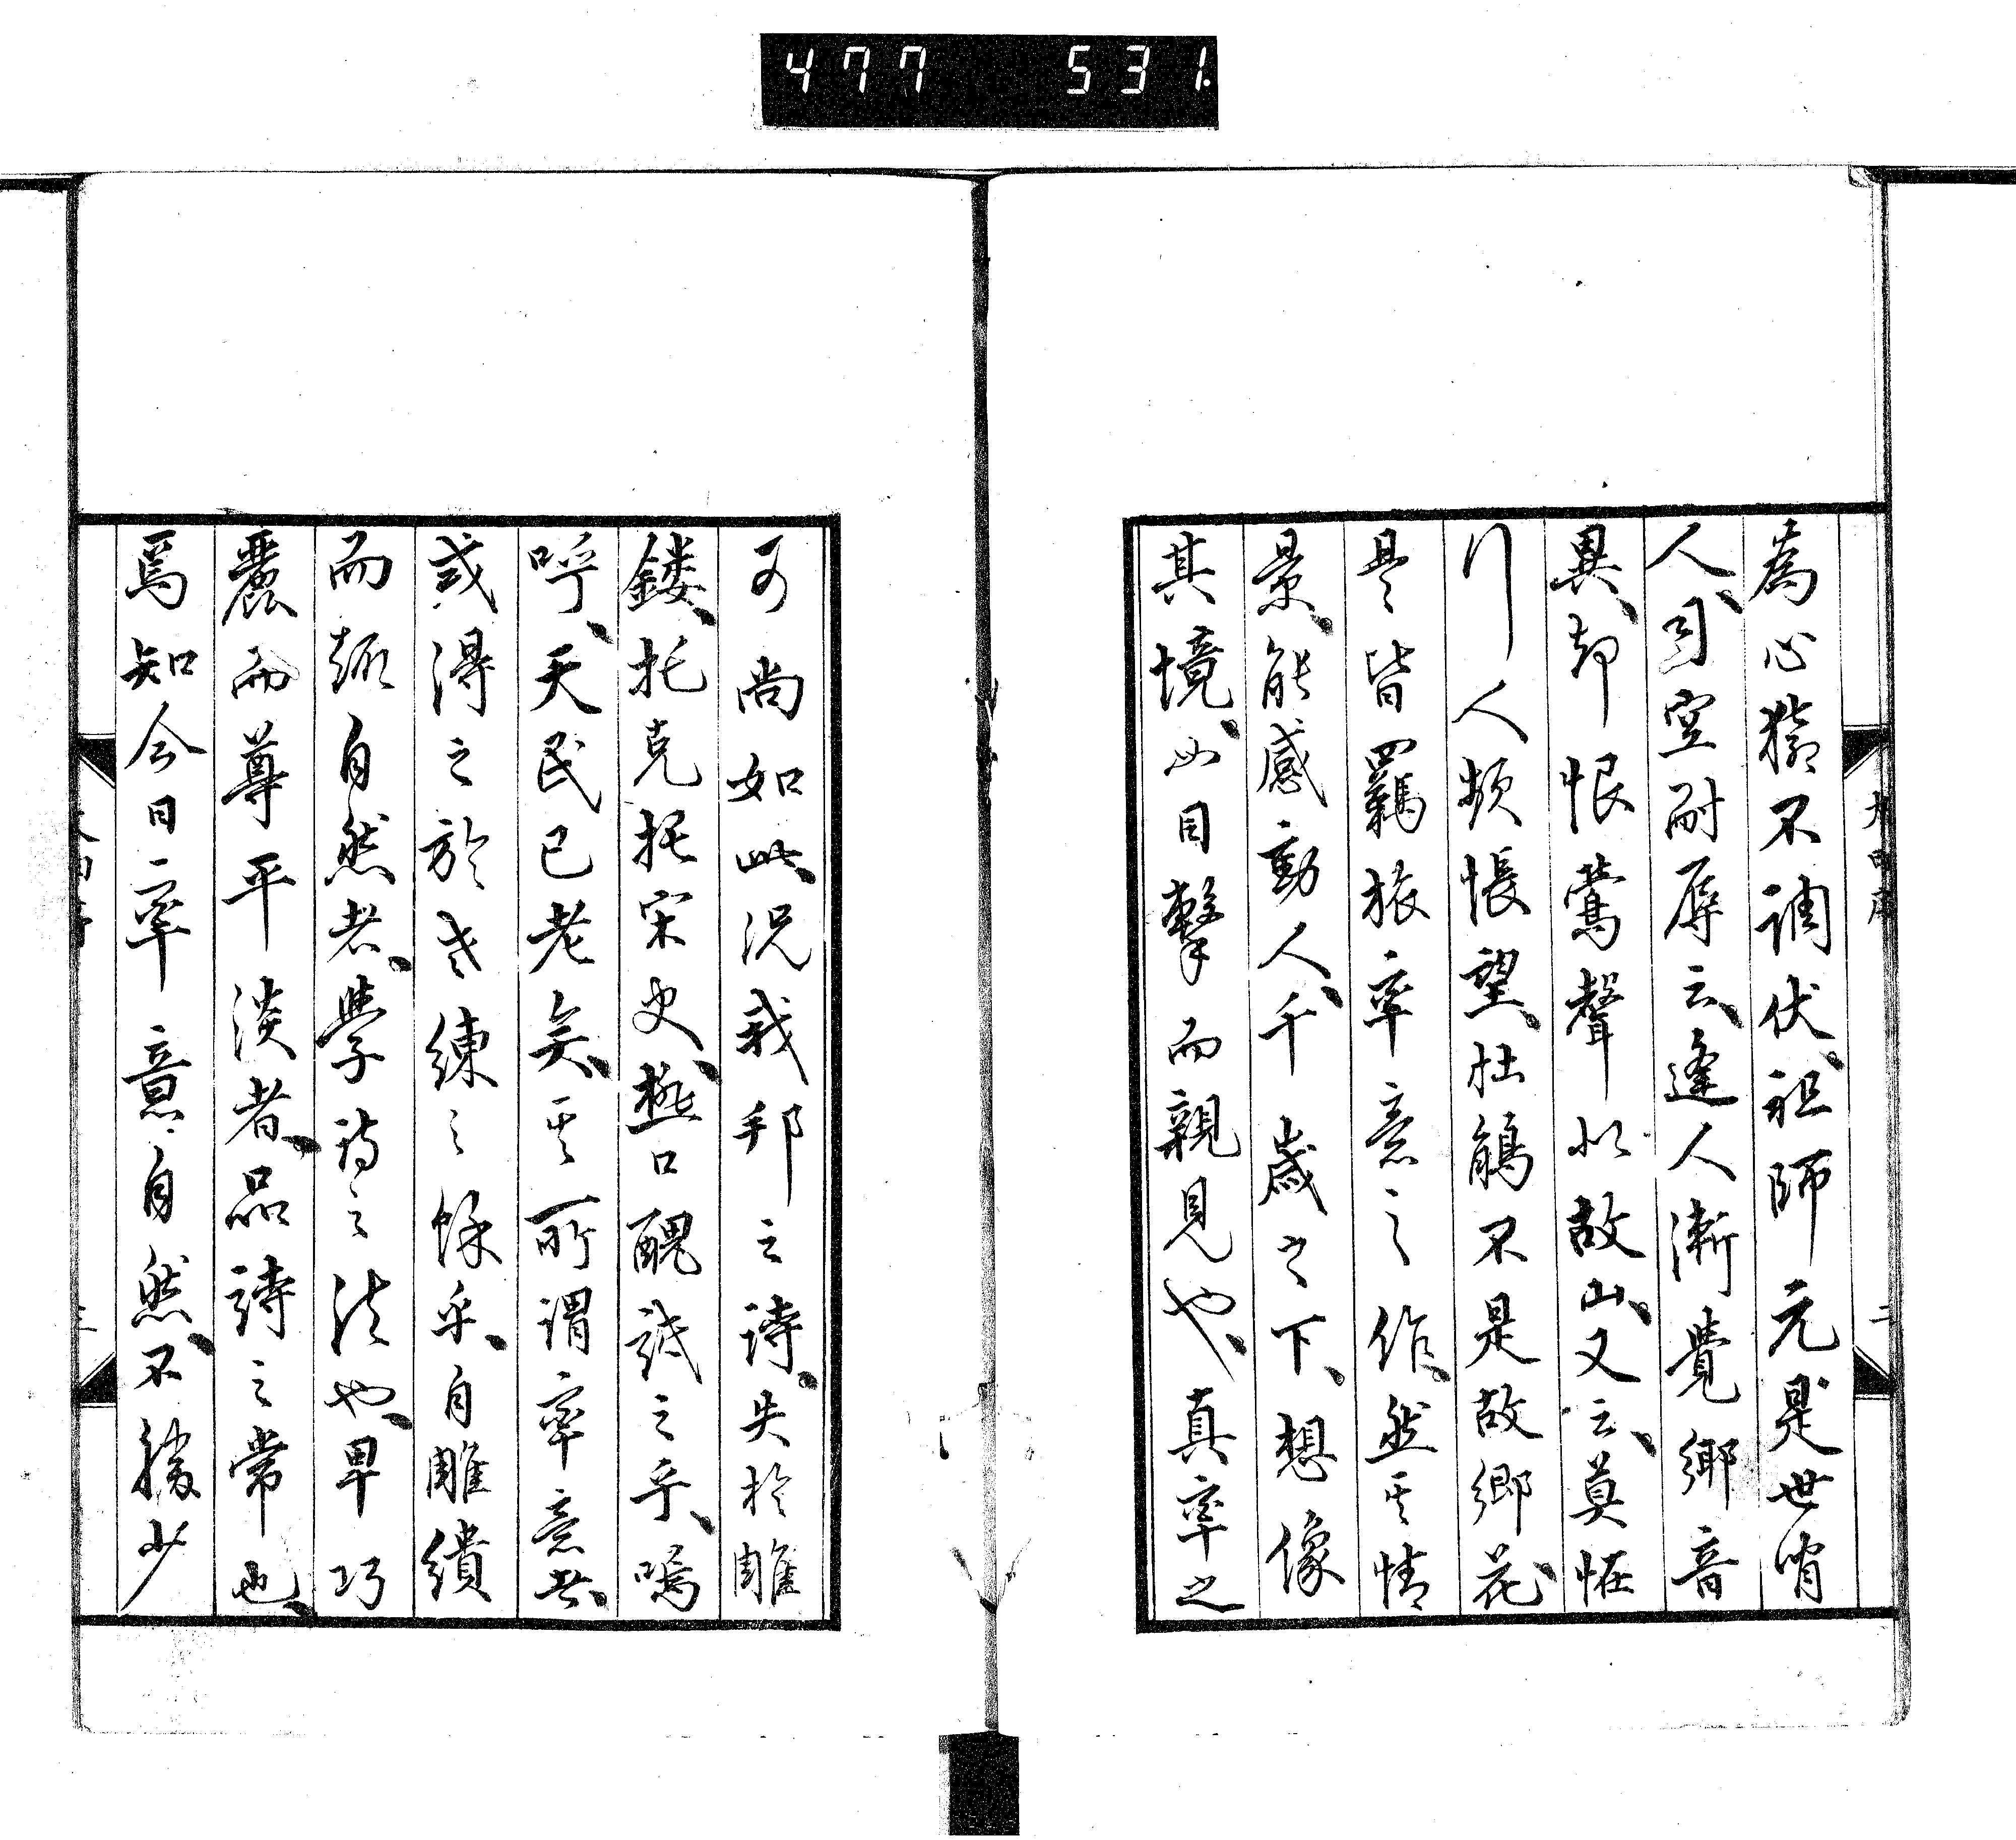 477 531.
為心猿不調伏、祖師元是世宵
人、司空耐辱云、逢人漸覺鄉音
異、却恨鶯聲似故山、又云、莫怪
行人頻悵望、杜鵑不是故鄉花、
是皆羈旅率意之作、然其情
景、能感動人、千歲之下、想像
其境、如目擊而親見也、真率之
可尚如此、況我邦之詩、失於雕
鏤、托克托宋史、極口醜詆之乎、嗚
呼、天民已老矣、其所謂率意者、
或得之於老練之餘乎、自雕繢
而趣自然者、學詩之法也、卑巧
麗而尊平淡者、品詩之常也、
焉知今日率意自然、不勝少
二
三